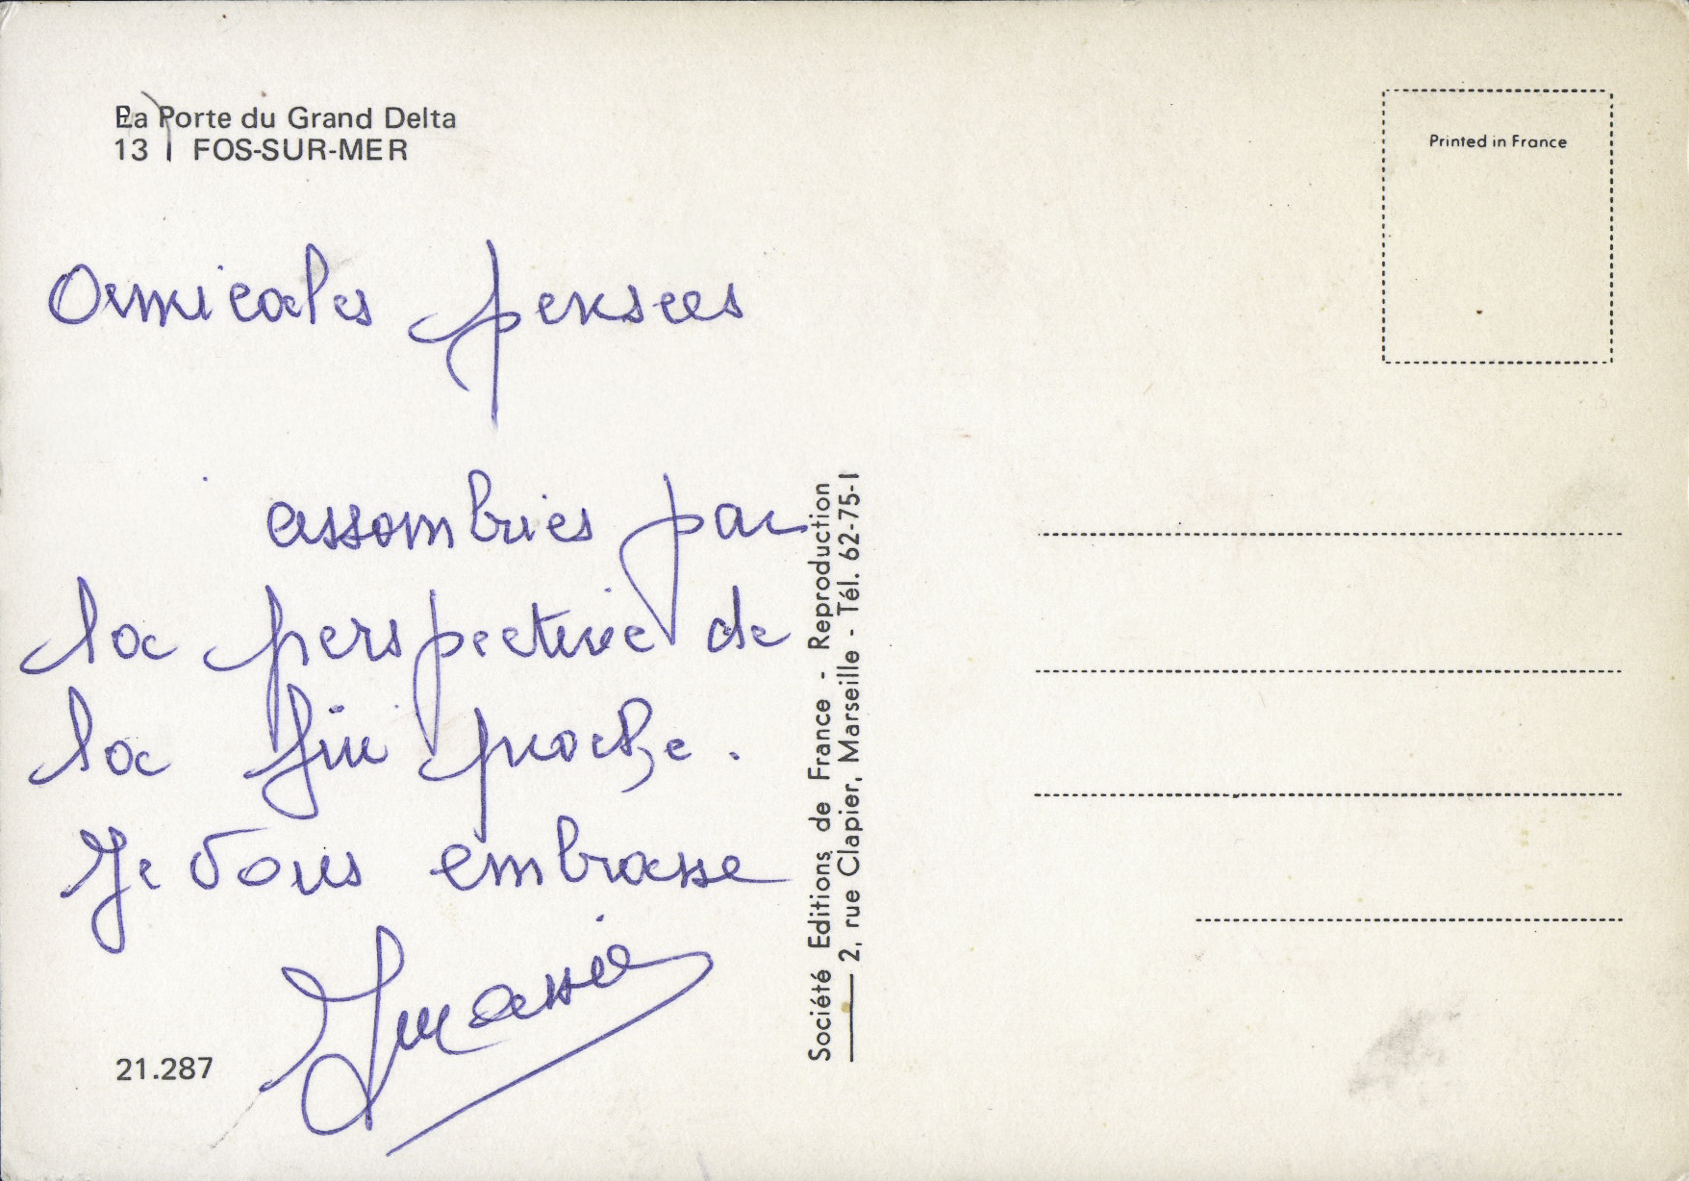 La Porte du Grand Delta
13 | FOS-SUR-MER
Printed in France
Amicales pensées
assombries par
la perspective de
la fin proche.
Je vous embrasse
21.287
Société Editions de France - Reproduction
2, rue Clapier, Marseille - Tél. 62-75-1